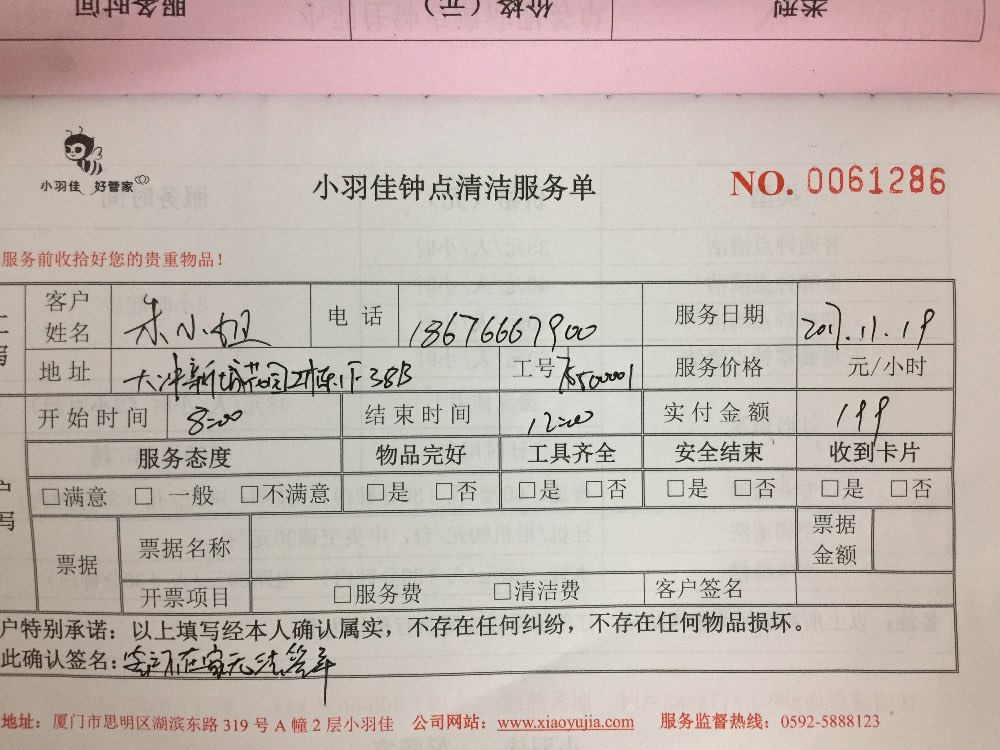 服务时间 价格（元） 类型
小羽佳 好管家
小羽佳钟点清洁服务单
NO. 0061286
服务前收拾好您的贵重物品！
客户姓名 朱小姐 电话 18676667900 服务日期 2017.11.19
地址 大冲新城花园 38B 工号 服务价格 元/小时
开始时间 8:00 结束时间 12:00 实付金额 199
服务态度 物品完好 工具齐全 安全结束 收到卡片
□满意 □一般 □不满意 □是 □否 □是 □否 □是 □否 □是 □否
票据 票据名称 票据金额
开票项目 □服务费 □清洁费 客户签名
户特别承诺：以上填写经本人确认属实，不存在任何纠纷，不存在任何物品损坏。
此确认签名：客户不在家无法签字
地址：厦门市思明区湖滨东路 319 号 A 幢 2 层小羽佳 公司网站：www.xiaoyujia.com 服务监督热线：0592-5888123